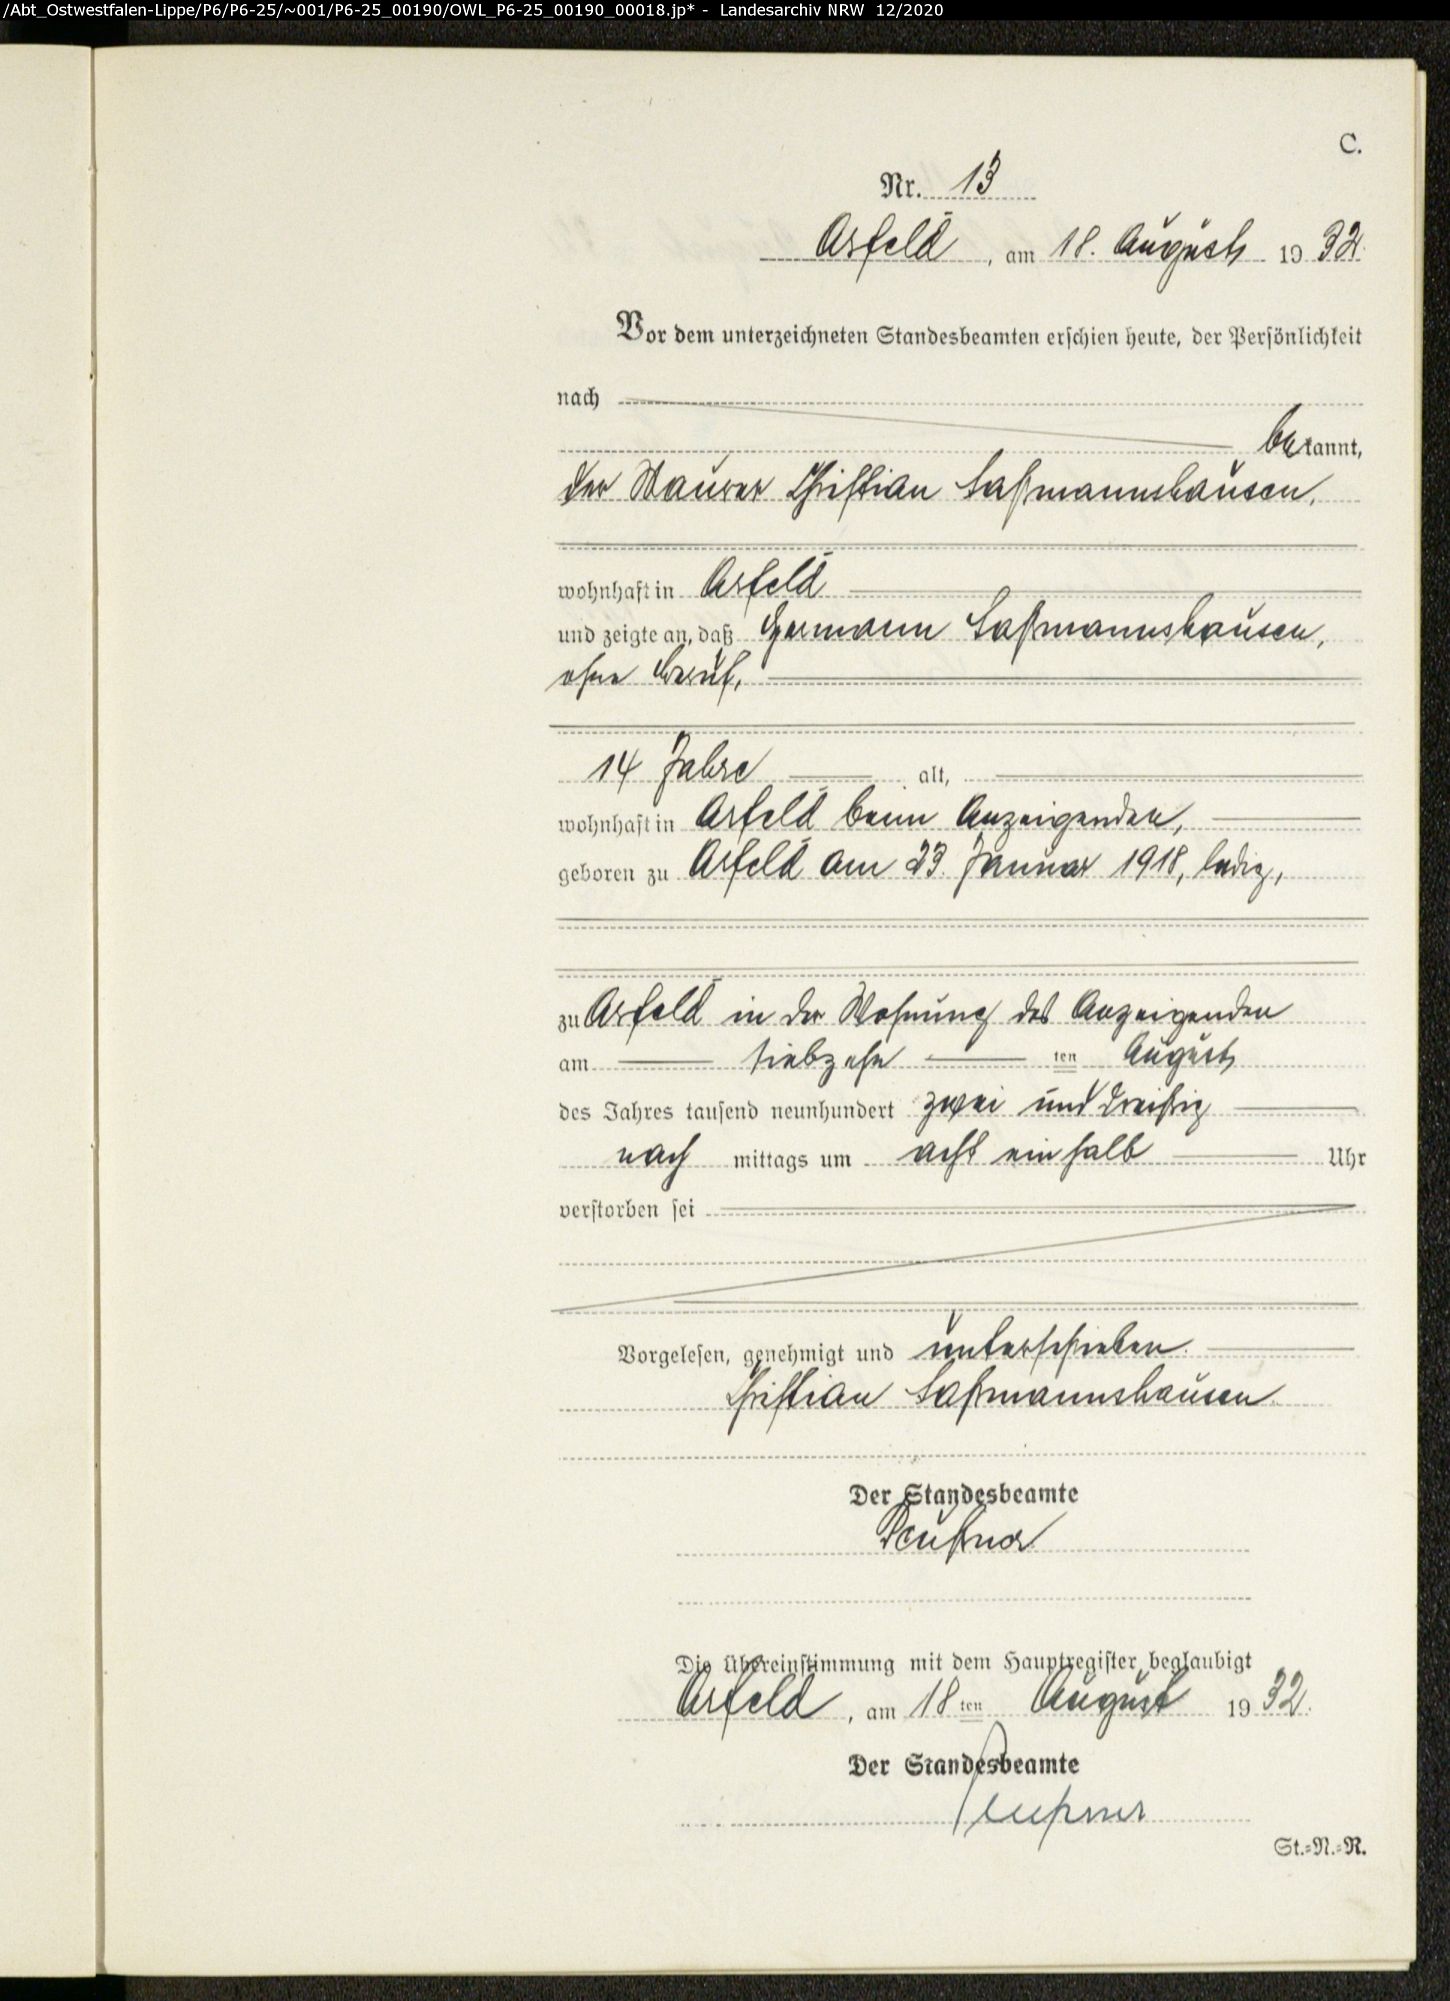 /Abt_Ostwestfalen-Lippe/P6/P6-25/~001/P6-25_00190/OWL_P6-25_00190_00018.jp* - Landesarchiv NRW 12/2020
C.
Nr. 13
Arfeld, am 18. August 1932.
Vor dem unterzeichneten Standesbeamten erschien heute, der Persönlichkeit
nach
bekannt,
der Maurer Christian Saßmannshausen,
wohnhaft in Arfeld
und zeigte an, daß Hermann Saßmannshausen,
ohne Beruf,
14 Jahre alt,
wohnhaft in Arfeld beim Anzeigenden,
geboren zu Arfeld am 23. Januar 1918, ledig,
zu Arfeld in der Wohnung des Anzeigenden
am siebzehn ten August
des Jahres tausend neunhundert zwei und dreißig
nach mittags um acht ein halb Uhr
verstorben sei
Vorgelesen, genehmigt und unterschrieben.
Christian Saßmannshausen.
Der Standesbeamte
Die Übereinstimmung mit dem Hauptregister beglaubigt
Arfeld, am 18ten August 1932.
Der Standesbeamte
St.=N.=R.